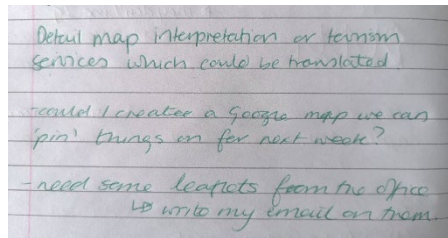 Detail map interpretation or tourism
services which could be translated
-could I create a Google map we can
'pin' things on for next week?
-need some leaflets from the office
↳ write my email on them.